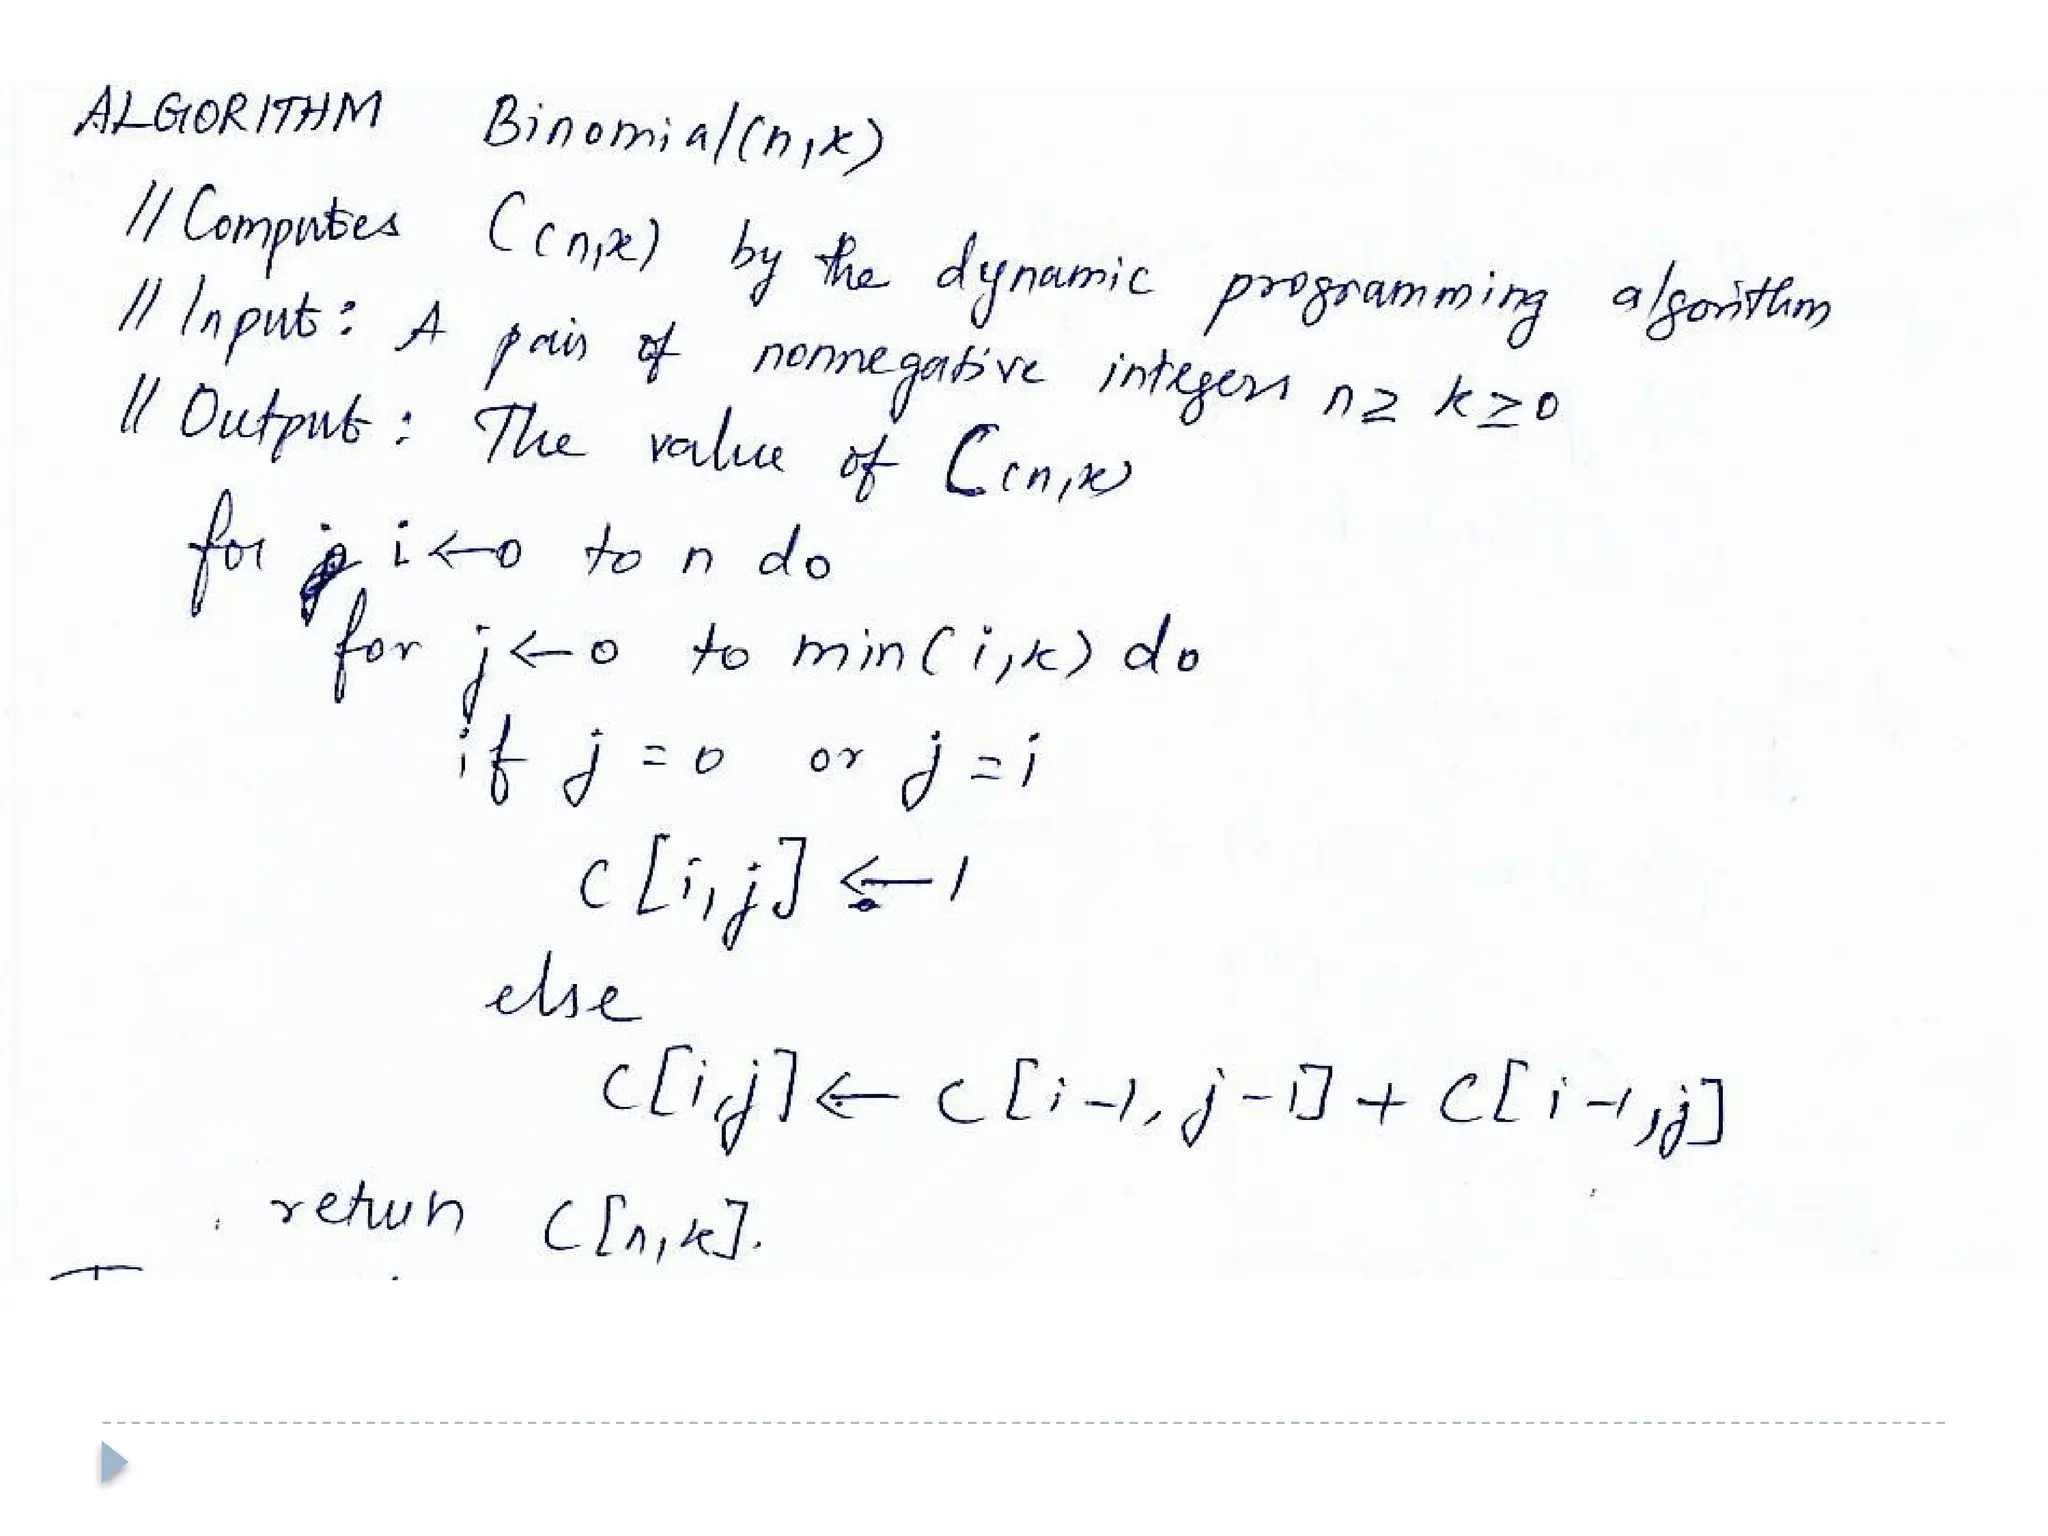 ALGORITHM Binomial(n,k)
// Computes C(n,k) by the dynamic programming algorithm
// Input: A pair of nonnegative integers n ≥ k ≥ 0
// Output: The value of C(n,k)
for i ← 0 to n do
for j ← 0 to min(i,k) do
if j = 0 or j = i
C[i,j] ← 1
else
C[i,j] ← C[i-1, j-1] + C[i-1,j]
return C[n,k].